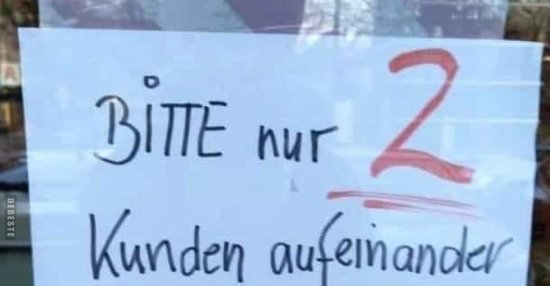 BITTE nur 2
Kunden aufeinander
DEBESTE